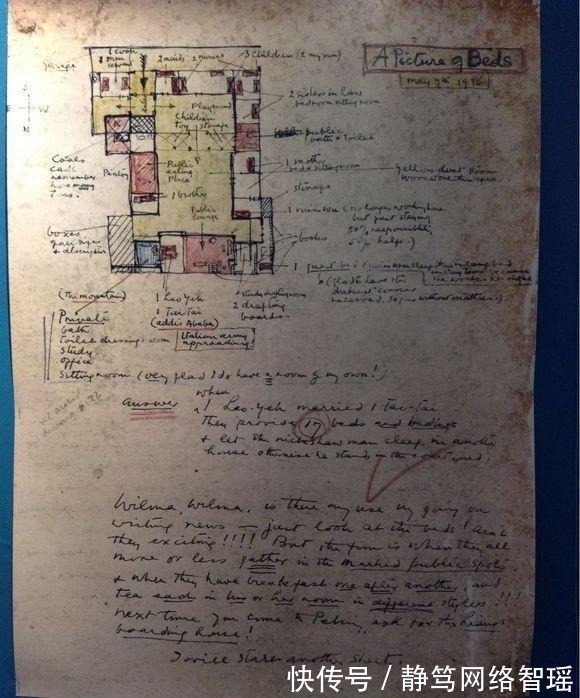 A Picture of Beds
May 9th 1936
1 cook
2 maids
2 nurses
3 children (2 my own)
Garage
S
E W
N
Playground
Children toy storage
2 sisters in law
bedroom sitting room
public
bath & toilet
Coals
can't
remember
how many
tons.
Pantry
Public
eating
Place
1 mother
bed & sitting room
Yellow dust storm
storage
1 brother
Public
lounge
but just staying
50% responsibility
50% help.)
boxes
books
1 guest
(The mountain)
1 Lao Yeh
1 Tai Tai
(Addis Ababa)
2 drafting
boards.
Italian army
approaching!
Private
bath
toilet dressing room
study
office
Sitting room (very glad I do have a room of my own!)
Answer
when
1 Lao-Yeh married 1 Tai-Tai
They provide 17 beds and bedings
& let the rickshaw man sleep in another
house otherwise he stands in the courtyard.
Wilma, Wilma, is there any use my going on
writing news — just look at the beds! Aren't
they exciting!!!! But the fun is when they all
more or less gather in the marked public spots
& when they have breakfast one after another, and
tea each in his or her room in different styles!!!
next time you come to Peking, ask for the Liangs
boarding house!
I will start another sheet.
快传号/静笃网络智瑶